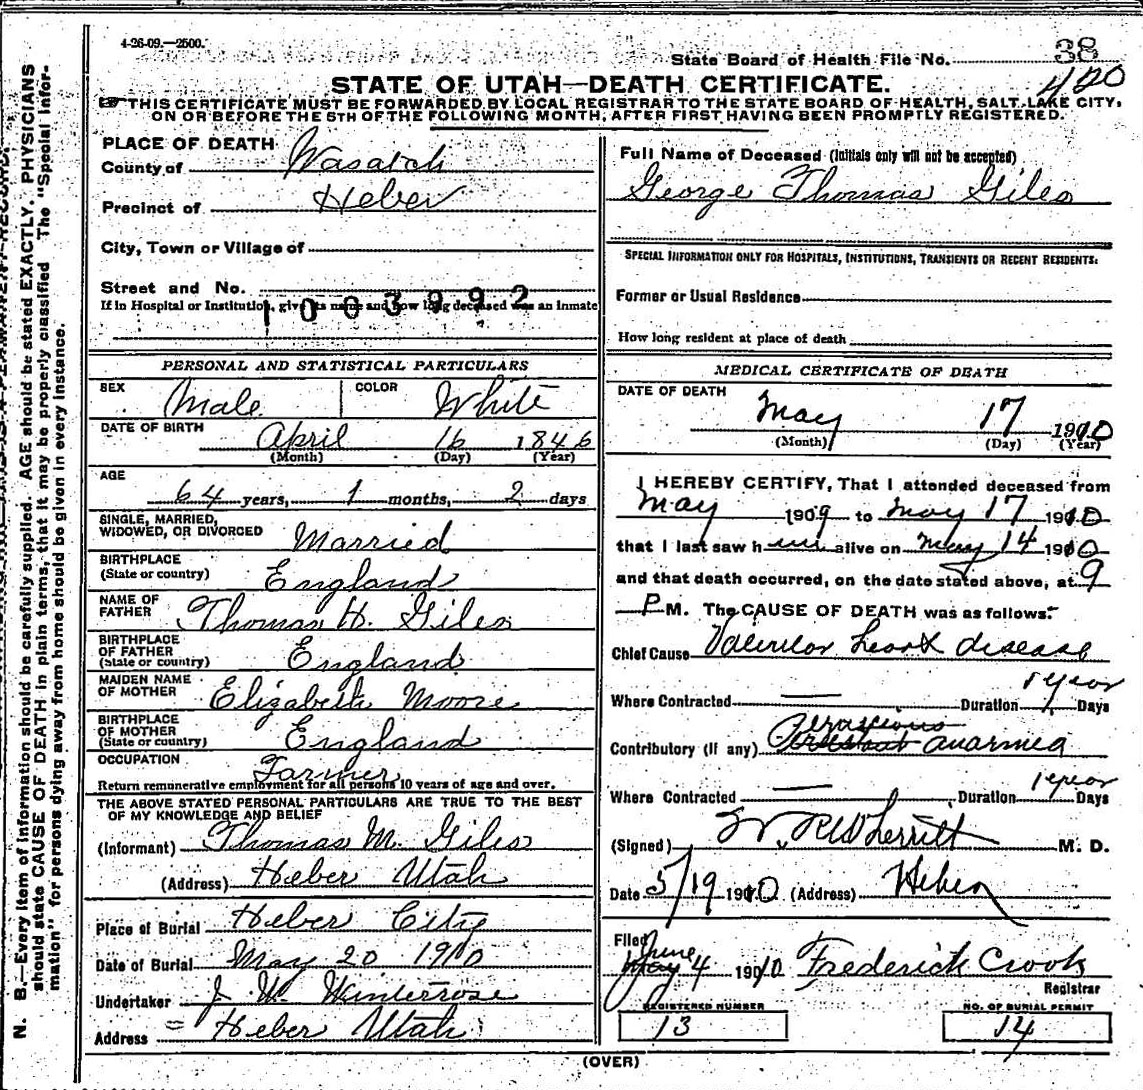 4-26-09.—2500.
State Board of Health File No. 38
420
STATE OF UTAH—DEATH CERTIFICATE.
THIS CERTIFICATE MUST BE FORWARDED BY LOCAL REGISTRAR TO THE STATE BOARD OF HEALTH, SALT LAKE CITY,
ON OR BEFORE THE 5TH OF THE FOLLOWING MONTH, AFTER FIRST HAVING BEEN PROMPTLY REGISTERED.
N. B.—Every item of information should be carefully supplied. AGE should be stated EXACTLY. PHYSICIANS
should state CAUSE OF DEATH in plain terms, that it may be properly classified. The "Special Infor-
mation" for persons dying away from home should be given in every instance.
PLACE OF DEATH
County of Wasatch
Precinct of Heber
City, Town or Village of
Street and No.
If in Hospital or Institution, give its name and how long deceased was an inmate
1003992
PERSONAL AND STATISTICAL PARTICULARS
SEX Male COLOR White
DATE OF BIRTH April 16 1846
(Month) (Day) (Year)
AGE
64 years, 1 months, 2 days
SINGLE, MARRIED,
WIDOWED, OR DIVORCED Married
BIRTHPLACE
(State or country) England
NAME OF
FATHER Thomas H. Giles
BIRTHPLACE
OF FATHER
(State or country) England
MAIDEN NAME
OF MOTHER Elizabeth Moore
BIRTHPLACE
OF MOTHER
(State or country) England
OCCUPATION Farmer
Return remunerative employment for all persons 10 years of age and over.
THE ABOVE STATED PERSONAL PARTICULARS ARE TRUE TO THE BEST
OF MY KNOWLEDGE AND BELIEF
(Informant) Thomas M. Giles
(Address) Heber Utah
Place of Burial Heber City
Date of Burial May 20 1910
Undertaker J. W. Winterrose
Address = Heber Utah
Full Name of Deceased (Initials only will not be accepted)
George Thomas Giles
SPECIAL INFORMATION ONLY FOR HOSPITALS, INSTITUTIONS, TRANSIENTS OR RECENT RESIDENTS:
Former or Usual Residence
How long resident at place of death
MEDICAL CERTIFICATE OF DEATH
DATE OF DEATH
May 17 1910
(Month) (Day) (Year)
I HEREBY CERTIFY, That I attended deceased from
May 1909 to May 17 1910
that I last saw him alive on May 14 1910
and that death occurred, on the date stated above, at 9
P M. The CAUSE OF DEATH was as follows:
Chief Cause Valvular heart disease
Where Contracted — Duration 1 year Days
Contributory (If any) anaemia
Where Contracted — Duration 1 year Days
(Signed) Wherritt M. D.
Date 5/19 1910 (Address) Heber
Filed June 4 1910 Frederick Crook
Registrar
REGISTERED NUMBER
13
NO. OF BURIAL PERMIT
14
(OVER)